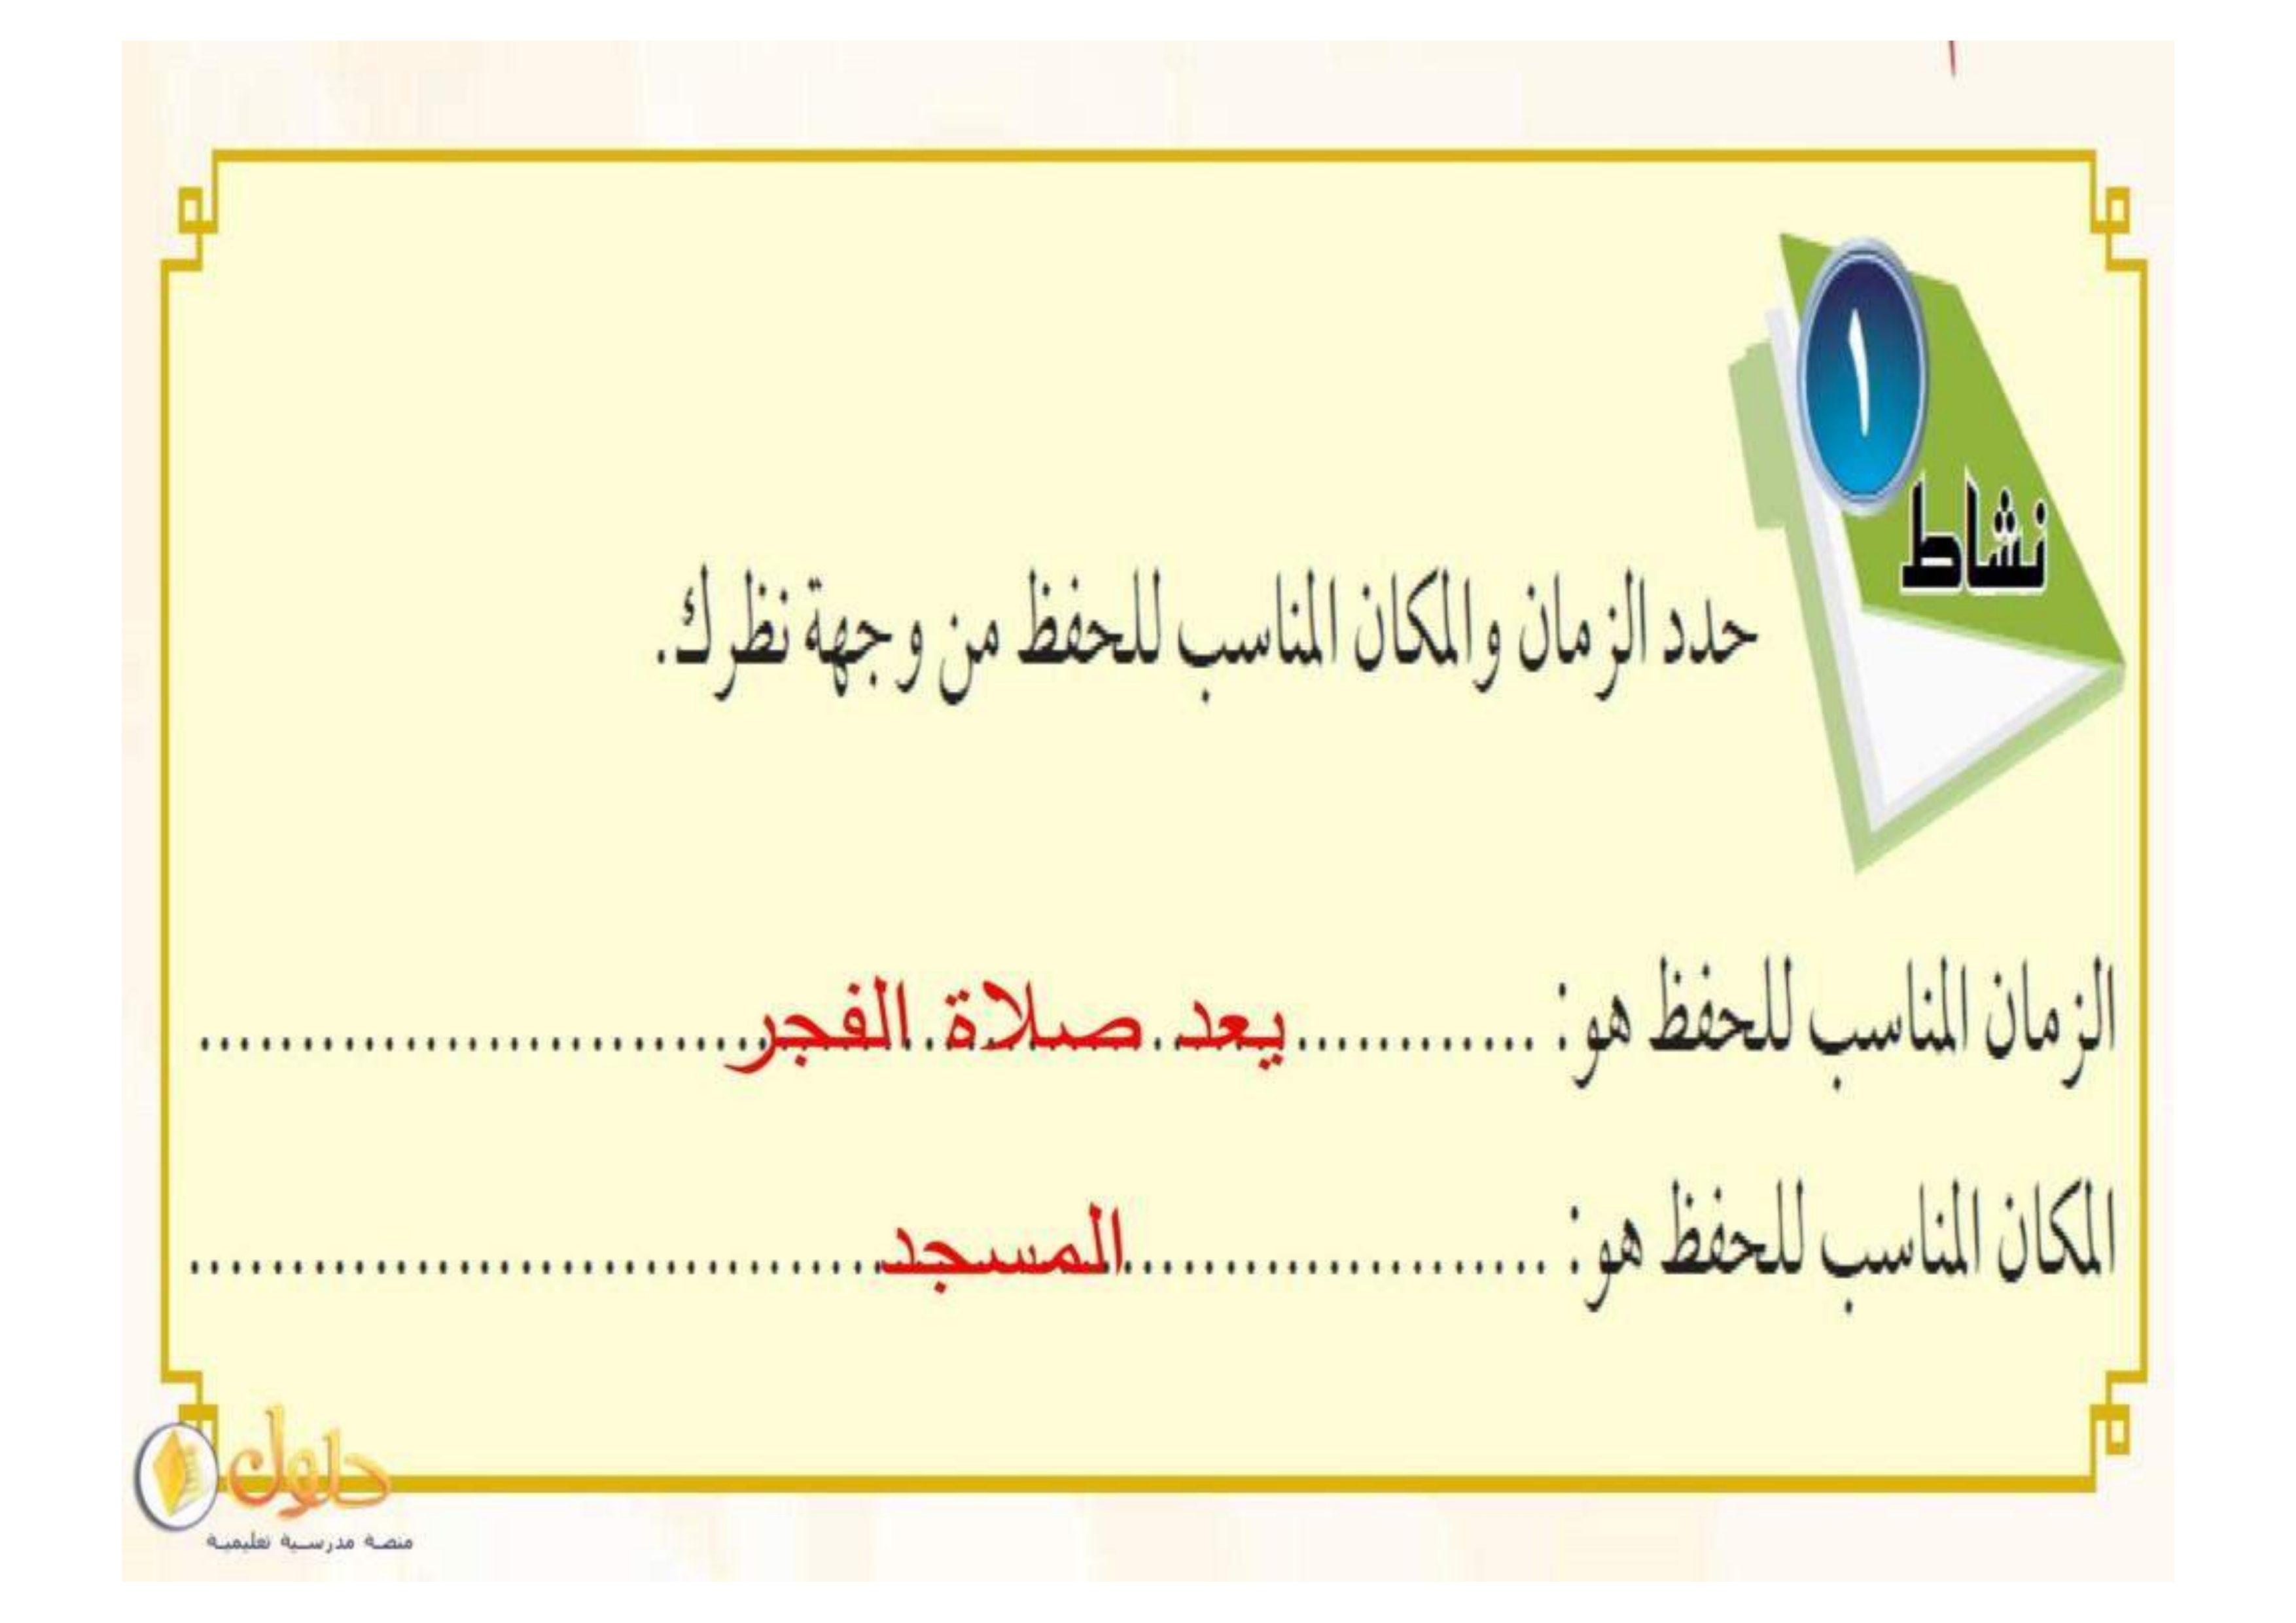 ١
نشاط
حدد الزمان والمكان المناسب للحفظ من وجهة نظرك.
الزمان المناسب للحفظ هو: ............يعد صلاة الفجر..........................
المكان المناسب للحفظ هو: ....................المسجد..................................
حلول
منصة مدرسية تعليمية